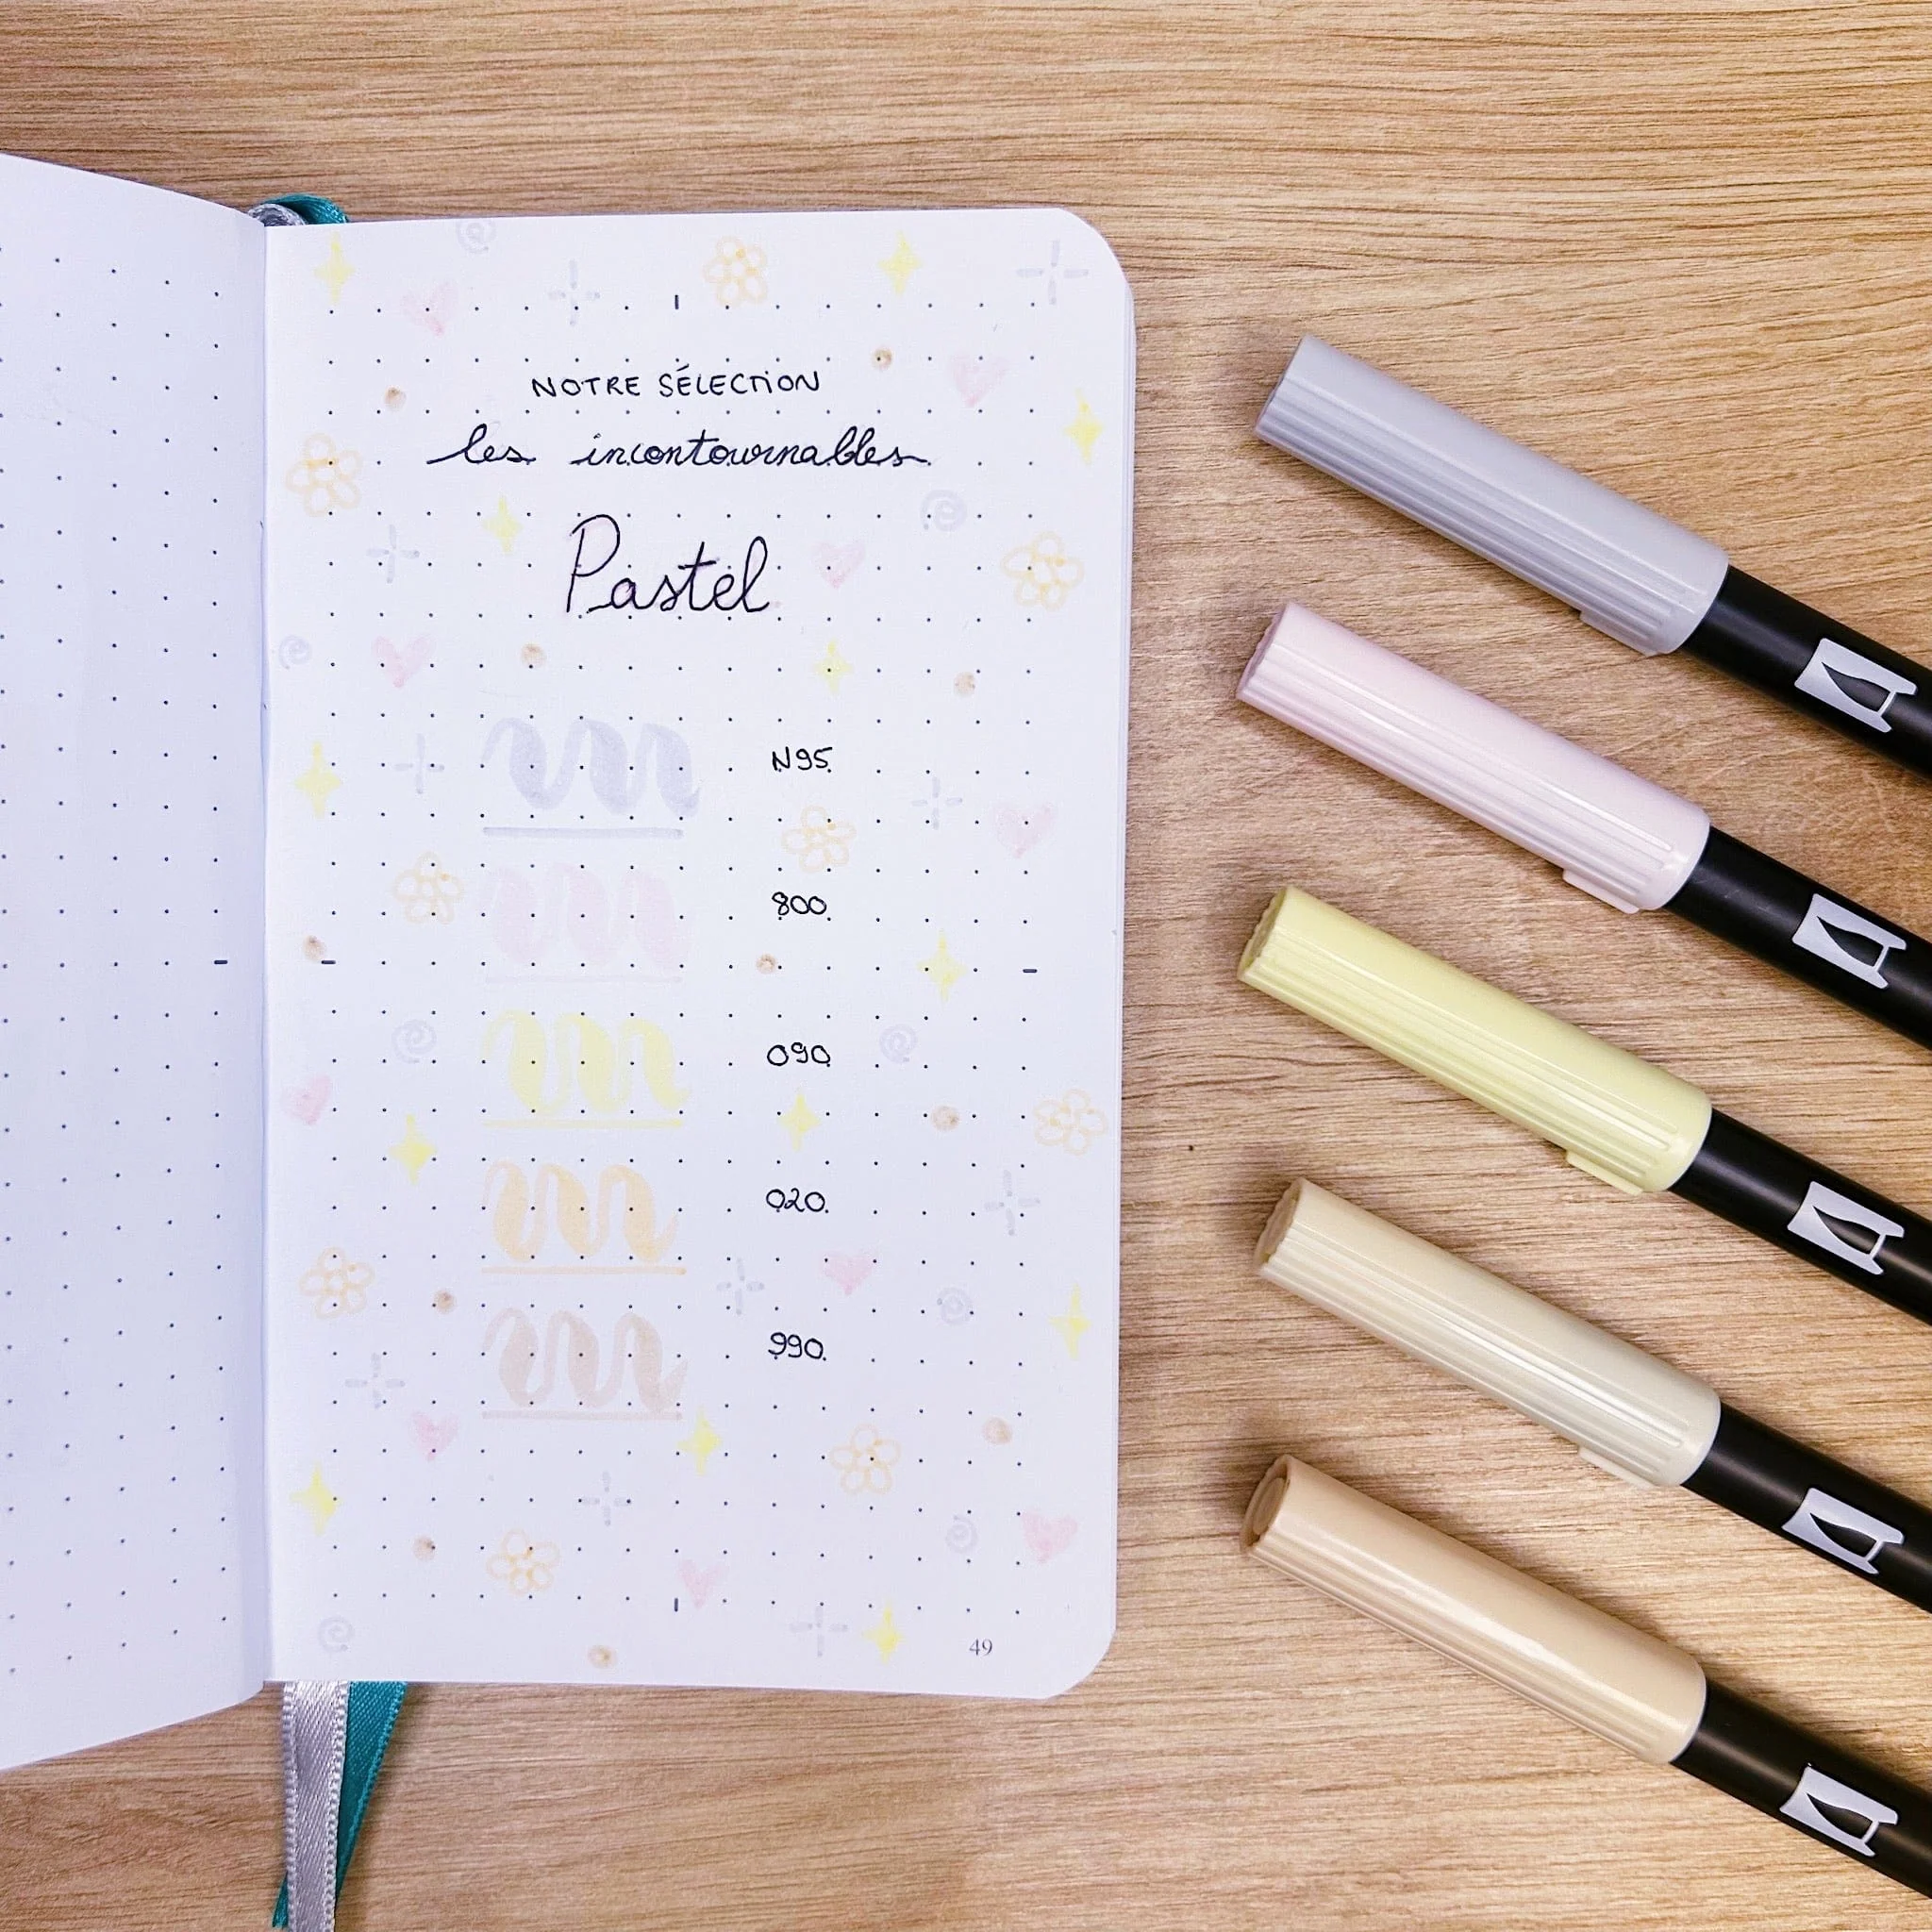 NOTRE SÉLECTION
les incontournables
Pastel
N95
800
090
020
990
49